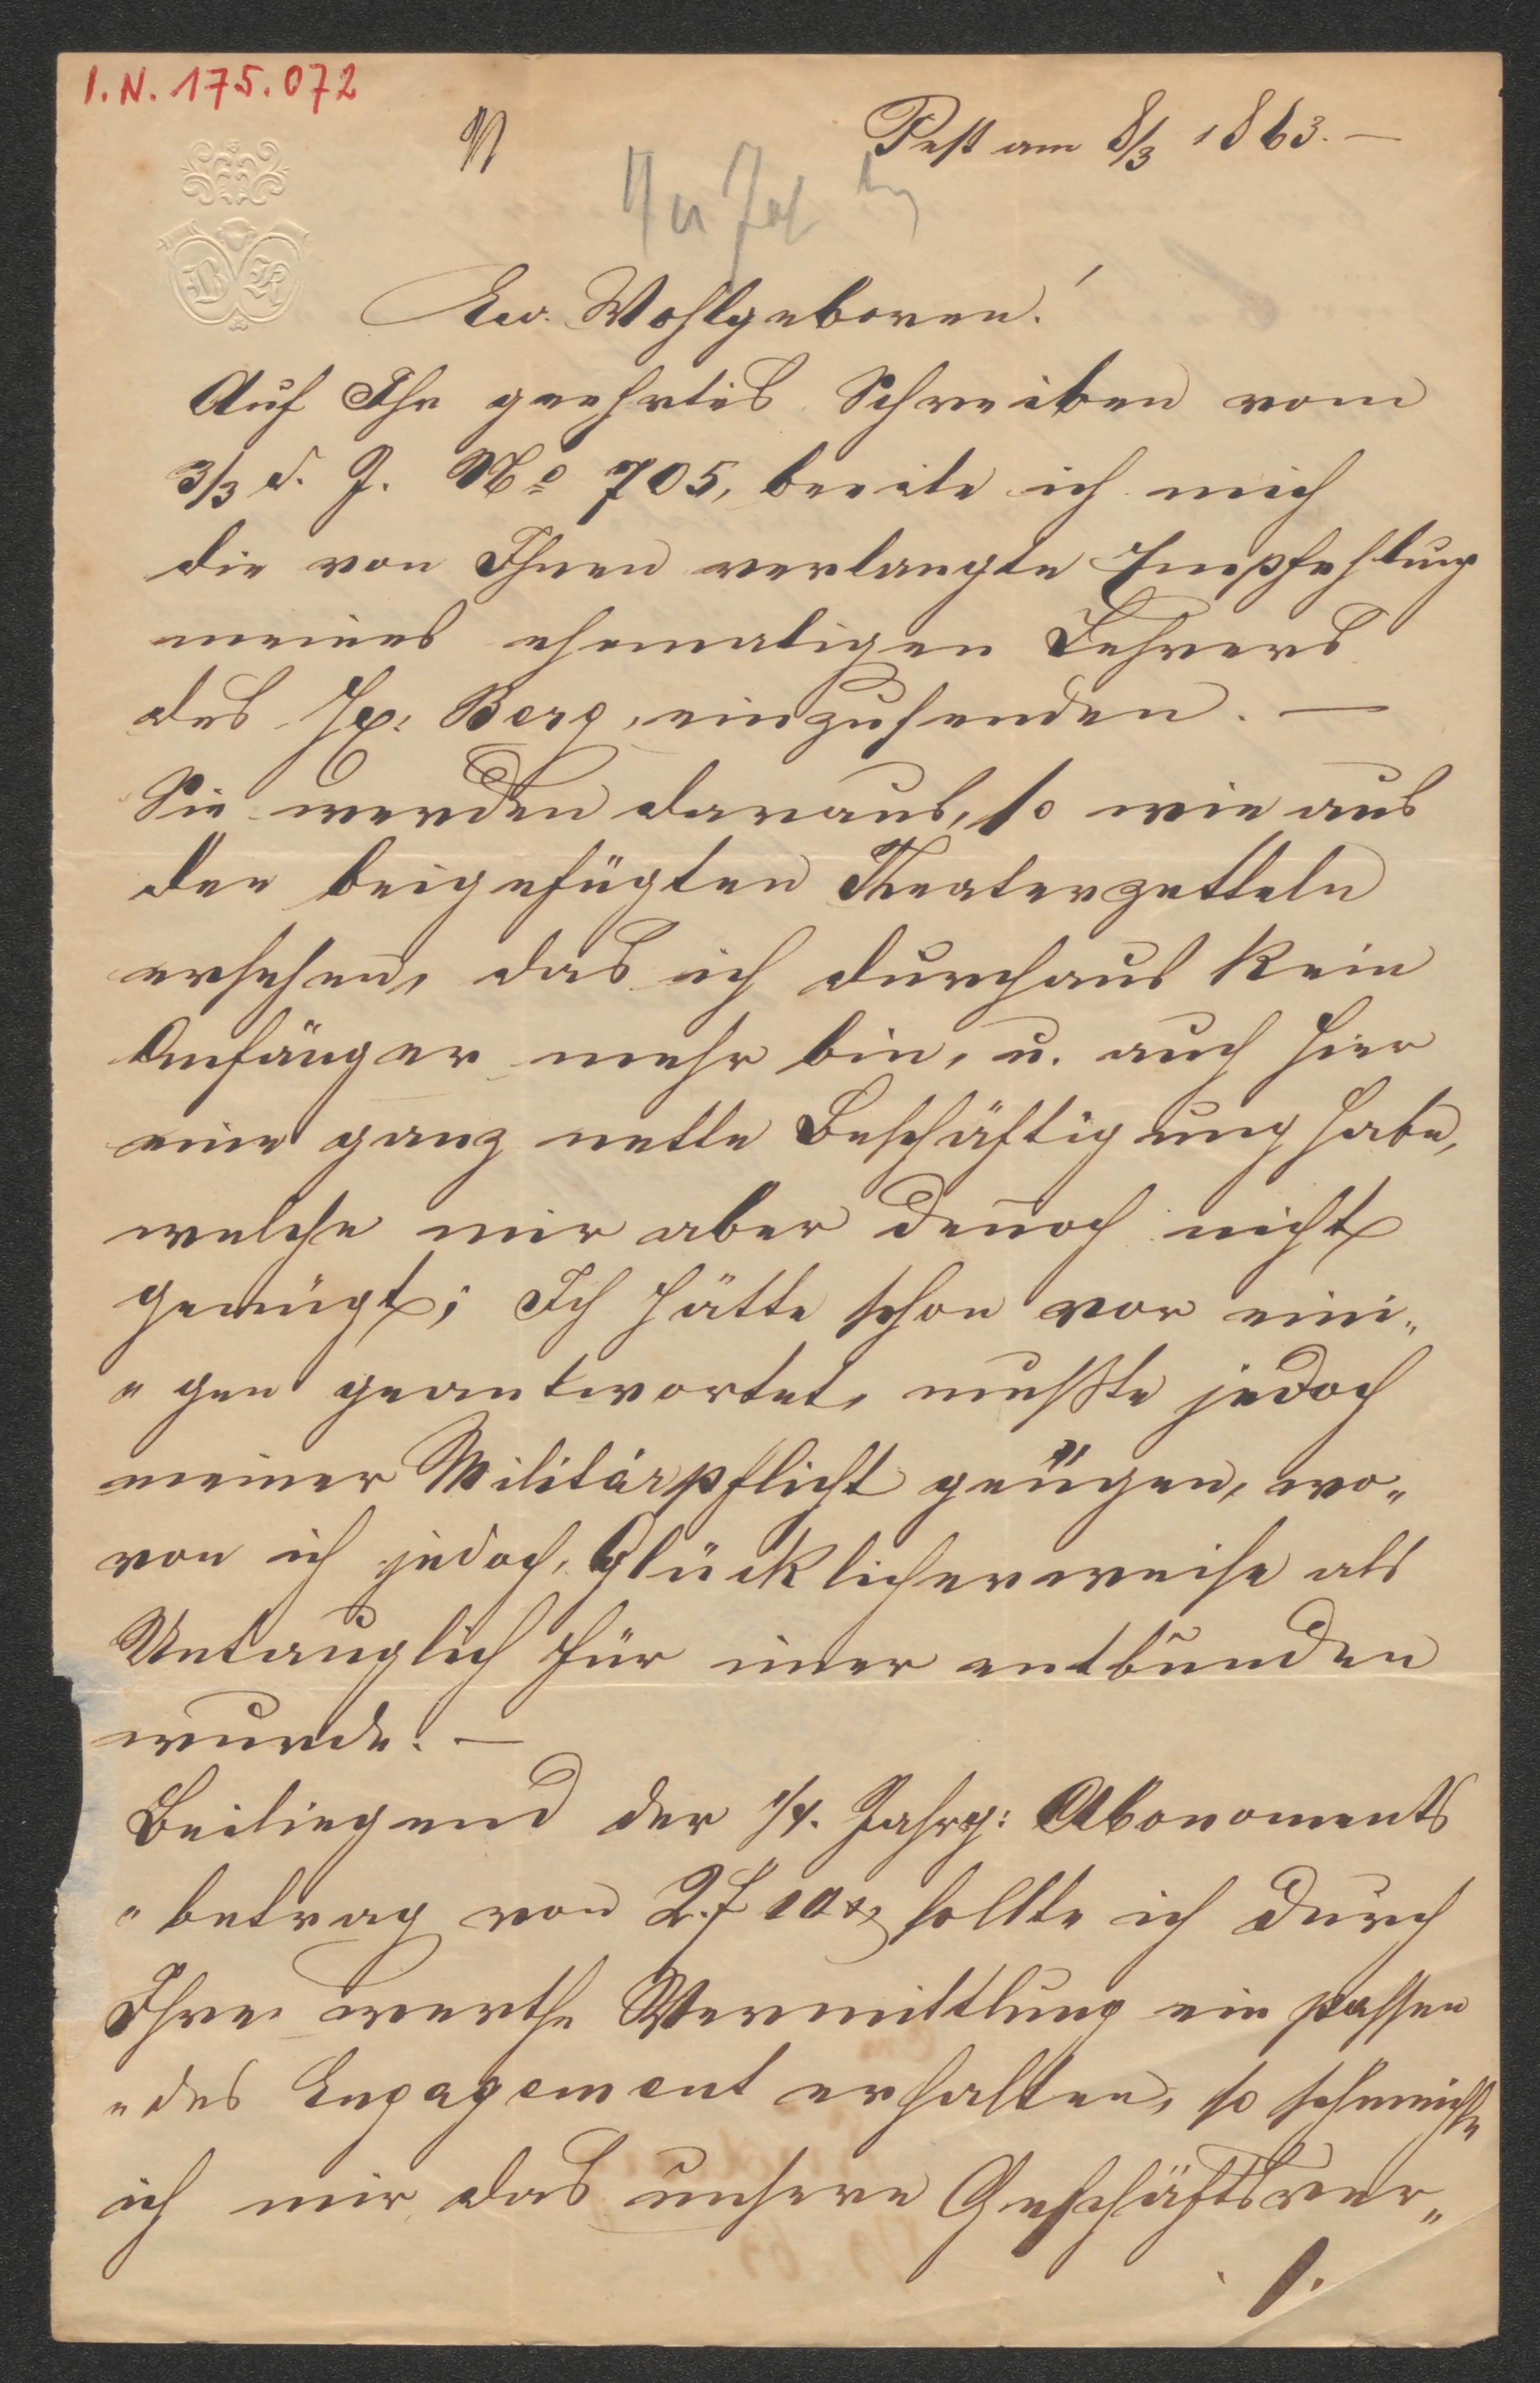 I.N. 175.072
Pest am 8/3 1863. —
BK
Ew. Wohlgeboren!
Auf Ihr geehrtes Schreiben vom
3/3 d. J. No 705, beeile ich mich
die von Ihnen verlangte Empfehlung
meines ehemaligen Lehrers
des H: Berg, einzusenden. —
Sie werden daraus, so wie aus
den beigefügten Theaterzetteln
ersehen, das ich durchaus kein
Anfänger mehr bin, u. auch hier
eine ganz nette Beschäftigung habe,
welche mir aber deñoch nicht
genügt; Ich hätte schon vor eini„
„gen geantwortet, mußte jedoch
meiner Militärpflicht geügen, wo„
von ich jedoch, Glücklicherweise als
Untauglich für im̄er entbunden
wurde. —
Beiliegend der 1/4. Jahrg: Abonoments
„betrag von 2.f 10x, sollte ich durch
Ihre werthe Vermittlung ein passen
„des Engagement erhalten, so schmeichle
ich mir das unsere Geschäftsver„
./.